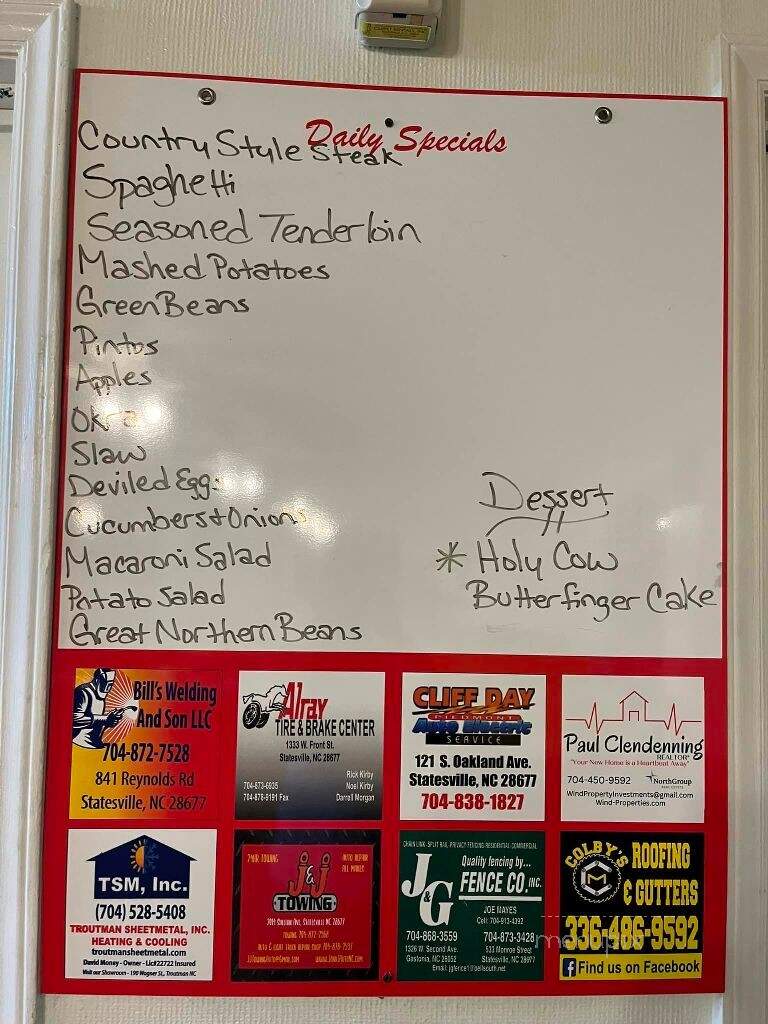 Daily Specials
Country Style Steak
Spaghetti
Seasoned Tenderloin
Mashed Potatoes
Green Beans
Pintos
Apples
Okra
Slaw
Deviled Eggs
Cucumbers + Onions
Macaroni Salad
Potato Salad
Great Northern Beans
Dessert
* Holy Cow
Butterfinger Cake
Bill's Welding
And Son LLC
704-872-7528
841 Reynolds Rd
Statesville, NC 28677
Alray
TIRE & BRAKE CENTER
1333 W. Front St.
Statesville, NC 28677
Rick Kirby
704-873-6935
Noel Kirby
704-878-9191 Fax
Darrell Morgan
CLIFF DAY
PIEDMONT
Auto Electric
SERVICE
121 S. Oakland Ave.
Statesville, NC 28677
704-838-1827
Paul Clendenning
REALTOR®
"Your New Home is a Heartbeat Away"
704-450-9592
NorthGroup
REAL ESTATE
WindPropertyInvestments@gmail.com
Wind-Properties.com
TSM, Inc.
(704) 528-5408
TROUTMAN SHEETMETAL, INC.
HEATING & COOLING
troutmansheetmetal.com
David Money - Owner - Lic#22722 Insured
Visit our Showroom - 190 Wagner St., Troutman NC
24HR TOWING
AUTO REPAIR
ALL MAKES
J&J
TOWING
STATESVILLE NC 28677
CHAIN LINK-SPLIT RAIL PRIVACY FENCING RESIDENTIAL-COMMERCIAL
J&G
Quality fencing by...
FENCE CO., INC.
JOE MAYES
Cell: 704-913-4392
704-868-3559
704-873-3428
1336 W. Second Ave.
533 Monroe Street
Gastonia, NC 28052
Statesville, NC 28677
Email: jgfence1@bellsouth.net
COLBY'S
ROOFING
& GUTTERS
336-486-9592
Find us on Facebook